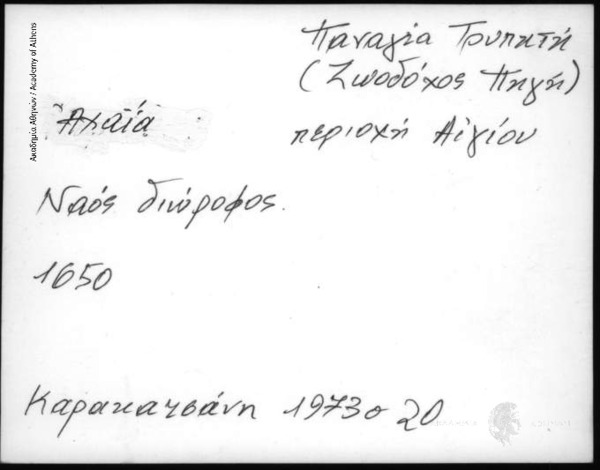 Ακαδημία Αθηνών / Academy of Athens
Παναγία Τρυπητή
(Ζωοδόχος Πηγή)
Ἀχαΐα
περιοχή Αἰγίου
Ναός διώροφος.
1650
Καρακατσάνη 1973 σ 20